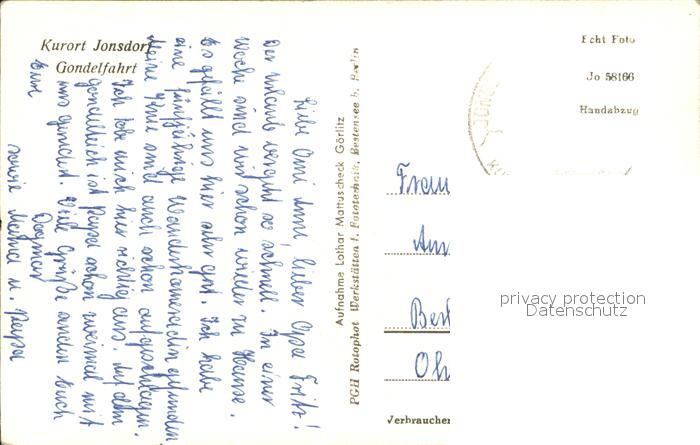 Kurort Jonsdorf
Gondelfahrt
Liebe Omi Anni, lieber Opa Fritz!
Der Urlaub vergeht so schnell. In einer
Woche sind wir schon wieder zu Hause.
Es gefällt uns hier sehr gut. Ich habe
eine fünfjährige Wanderkameradin gefunden.
Meine Knie sind auch schon aufgeschlagen.
Ich tobe mich hier richtig aus. Auf dem
Gondelteich ist Papa schon zweimal mit
uns gondelt. Viele Grüße senden Euch
Eure
Dagmar
sowie Mama u. Papa
Aufnahme Lothar Mattuscheck Görlitz
PGH Rotophot Werkstätten f. Fototechnik, Bestensee b. Berlin
Echt Foto
Jo 58166
Handabzug
Frau
An
Berl
Oh
Verbraucher
privacy protection
Datenschutz